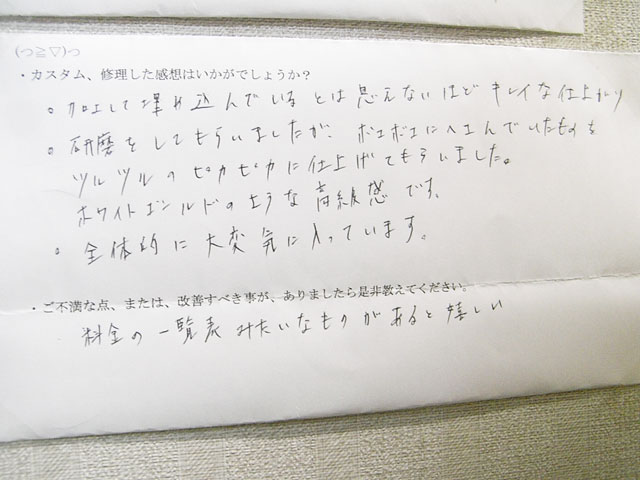 (つ≧▽)っ
・カスタム、修理した感想はいかがでしょうか？
。加工して埋め込んでいるとは思えないほどキレイな仕上がり
。研磨をしてもらいましたが、ボコボコにへこんでいたものを
ツルツルのピカピカに仕上げてもらいました。
ホワイトゴールドのような高級感です。
。全体的に大変気に入っています。
・ご不満な点、または、改善すべき事が、ありましたら是非教えてください。
料金の一覧表みたいなものがあると嬉しい